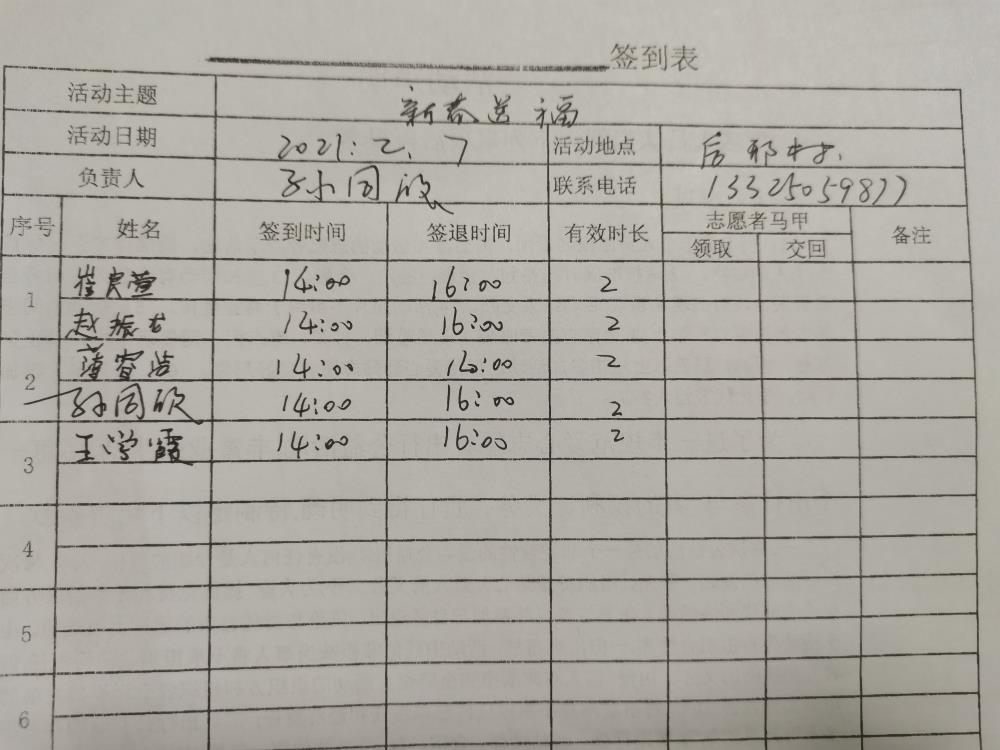 签到表
活动主题 新春送福
活动日期 2021.2.7 活动地点 后邢村.
负责人 孙同欣 联系电话 13325059877
序号 姓名 签到时间 签退时间 有效时长 志愿者马甲 备注
领取 交回
1 崔良萱 14:00 16:00 2
赵振吉 14:00 16:00 2
2 薄睿浩 14:00 16:00 2
孙同欣 14:00 16:00 2
3 王学霞 14:00 16:00 2
4
5
6